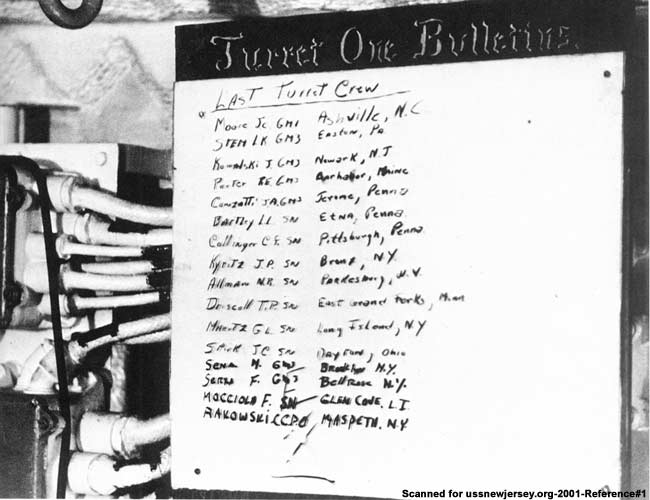 Turret One Bulletins.
LAST Turret Crew
Moore J.C. GM1 Ashville, N.C
STEM L.K GM3 Easton, Pa
Kowalski J. GM3 Newark, N.J
Porter R.E. GM3 Barharbor, Maine
J.A. GM3 Jerome, Penna
Bartley L.L. SN Etna, Penna.
Collinger C.E. SN Pittsburgh, Penna
J.P. SN Bronx, N.Y.
Allman N.R. SN
Driscoll T.P. SN East Grand Forks, Minn
G.L. SN Long Island, N.Y
J.C SN Dayton, Ohio
Sena M. GM3 Brooklyn N.Y.
F. GM3 Bellrose N.Y.
MOCCIOLO F. SN GLEN COVE, L.I.
RAKOWSKI C.C.P.O MASPETH. N.Y.
Scanned for ussnewjersey.org-2001-Reference#1